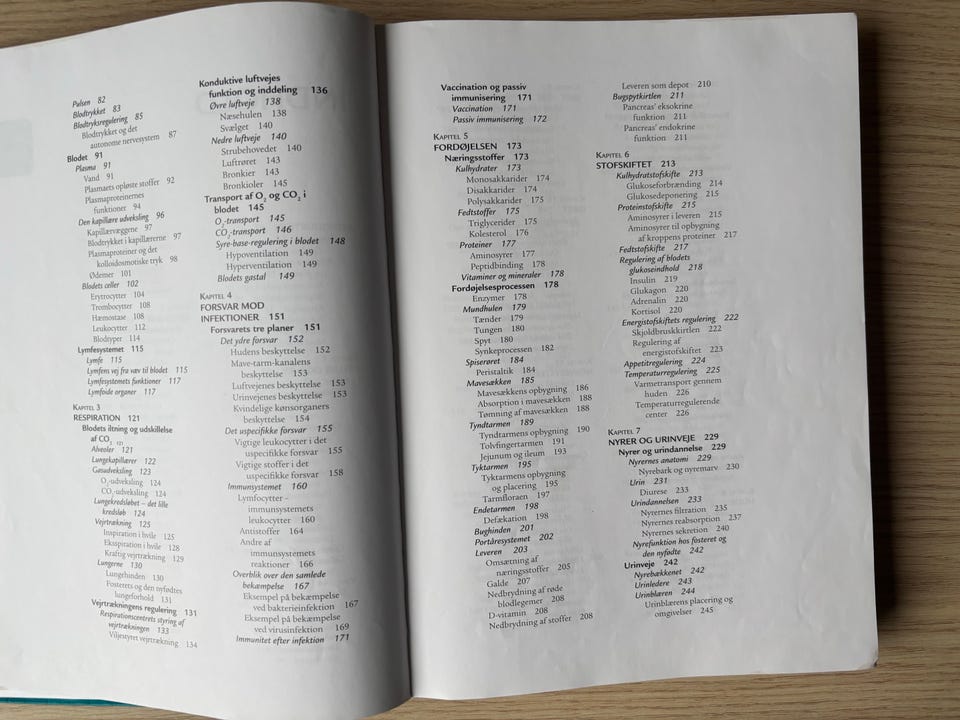 Pulsen 82
Blodtrykket 83
Blodtryksregulering 85
Blodtrykket og det
autonome nervesystem 87
Blodet 91
Plasma 91
Vand 91
Plasmaets opløste stoffer 92
Plasmaproteinernes
funktioner 94
Den kapillære udveksling 96
Kapillærvæggene 97
Blodtrykket i kapillærerne 97
Plasmaproteiner og det
kolloidosmotiske tryk 98
Ødemer 101
Blodets celler 102
Erytrocytter 104
Trombocytter 108
Hæmostase 108
Leukocytter 112
Blodtyper 114
Lymfesystemet 115
Lymfe 115
Lymfens vej fra væv til blodet 115
Lymfesystemets funktioner 117
Lymfoide organer 117
KAPITEL 3
RESPIRATION 121
Blodets iltning og udskillelse
af CO2 121
Alveoler 121
Lungekapillærer 122
Gasudveksling 123
O2-udveksling 124
CO2-udveksling 124
Lungekredsløbet – det lille
kredsløb 124
Vejrtrækning 125
Inspiration i hvile 125
Ekspiration i hvile 128
Kraftig vejrtrækning 129
Lungerne 130
Lungehinden 130
Fosterets og den nyfødtes
lungeforhold 131
Vejrtrækningens regulering 131
Respirationscentrets styring af
vejrtrækningen 133
Viljestyret vejrtrækning 134
Konduktive luftvejes
funktion og inddeling 136
Øvre luftveje 138
Næsehulen 138
Svælget 140
Nedre luftveje 140
Strubehovedet 140
Luftrøret 143
Bronkier 143
Bronkioler 145
Transport af O2 og CO2 i
blodet 145
O2-transport 145
CO2-transport 146
Syre-base-regulering i blodet 148
Hypoventilation 149
Hyperventilation 149
Blodets gastal 149
KAPITEL 4
FORSVAR MOD
INFEKTIONER 151
Forsvarets tre planer 151
Det ydre forsvar 152
Hudens beskyttelse 152
Mave-tarm-kanalens
beskyttelse 153
Luftvejenes beskyttelse 153
Urinvejenes beskyttelse 153
Kvindelige kønsorganers
beskyttelse 154
Det uspecifikke forsvar 155
Vigtige leukocytter i det
uspecifikke forsvar 155
Vigtige stoffer i det
uspecifikke forsvar 158
Immunsystemet 160
Lymfocytter –
immunsystemets
leukocytter 160
Antistoffer 164
Andre af
immunsystemets
reaktioner 166
Overblik over den samlede
bekæmpelse 167
Eksempel på bekæmpelse
ved bakterieinfektion 167
Eksempel på bekæmpelse
ved virusinfektion 169
Immunitet efter infektion 171
Vaccination og passiv
immunisering 171
Vaccination 171
Passiv immunisering 172
KAPITEL 5
FORDØJELSEN 173
Næringsstoffer 173
Kulhydrater 173
Monosakkarider 174
Disakkarider 174
Polysakkarider 175
Fedtstoffer 175
Triglycerider 175
Kolesterol 176
Proteiner 177
Aminosyrer 177
Peptidbinding 178
Vitaminer og mineraler 178
Fordøjelsesprocessen 178
Enzymer 178
Mundhulen 179
Tænder 179
Tungen 180
Spyt 180
Synkeprocessen 182
Spiserøret 184
Peristaltik 184
Mavesækken 185
Mavesækkens opbygning 186
Absorption i mavesækken 188
Tømning af mavesækken 188
Tyndtarmen 189
Tyndtarmens opbygning 190
Tolvfingertarmen 191
Jejunum og ileum 193
Tyktarmen 195
Tyktarmens opbygning
og placering 195
Tarmfloraen 197
Endetarmen 198
Defækation 198
Bughinden 201
Portåresystemet 202
Leveren 203
Omsætning af
næringsstoffer 205
Galde 207
Nedbrydning af røde
blodlegemer 208
D-vitamin 208
Nedbrydning af stoffer 208
Leveren som depot 210
Bugspytkirtlen 211
Pancreas' eksokrine
funktion 211
Pancreas' endokrine
funktion 211
KAPITEL 6
STOFSKIFTET 213
Kulhydratstofskifte 213
Glukoseforbrænding 214
Glukosedeponering 215
Proteinstofskifte 215
Aminosyrer i leveren 215
Aminosyrer til opbygning
af kroppens proteiner 217
Fedtstofskifte 217
Regulering af blodets
glukoseindhold 218
Insulin 219
Glukagon 220
Adrenalin 220
Kortisol 220
Energistofskiftets regulering 222
Skjoldbruskkirtlen 222
Regulering af
energistofskiftet 223
Appetitregulering 224
Temperaturregulering 225
Varmetransport gennem
huden 226
Temperaturregulerende
center 226
KAPITEL 7
NYRER OG URINVEJE 229
Nyrer og urindannelse 229
Nyrernes anatomi 229
Nyrebark og nyremarv 230
Urin 231
Diurese 233
Urindannelsen 233
Nyrernes filtration 235
Nyrernes reabsorption 237
Nyrernes sekretion 240
Nyrefunktion hos fosteret og
den nyfødte 242
Urinveje 242
Nyrebækkenet 242
Urinledere 243
Urinblæren 244
Urinblærens placering og
omgivelser 245